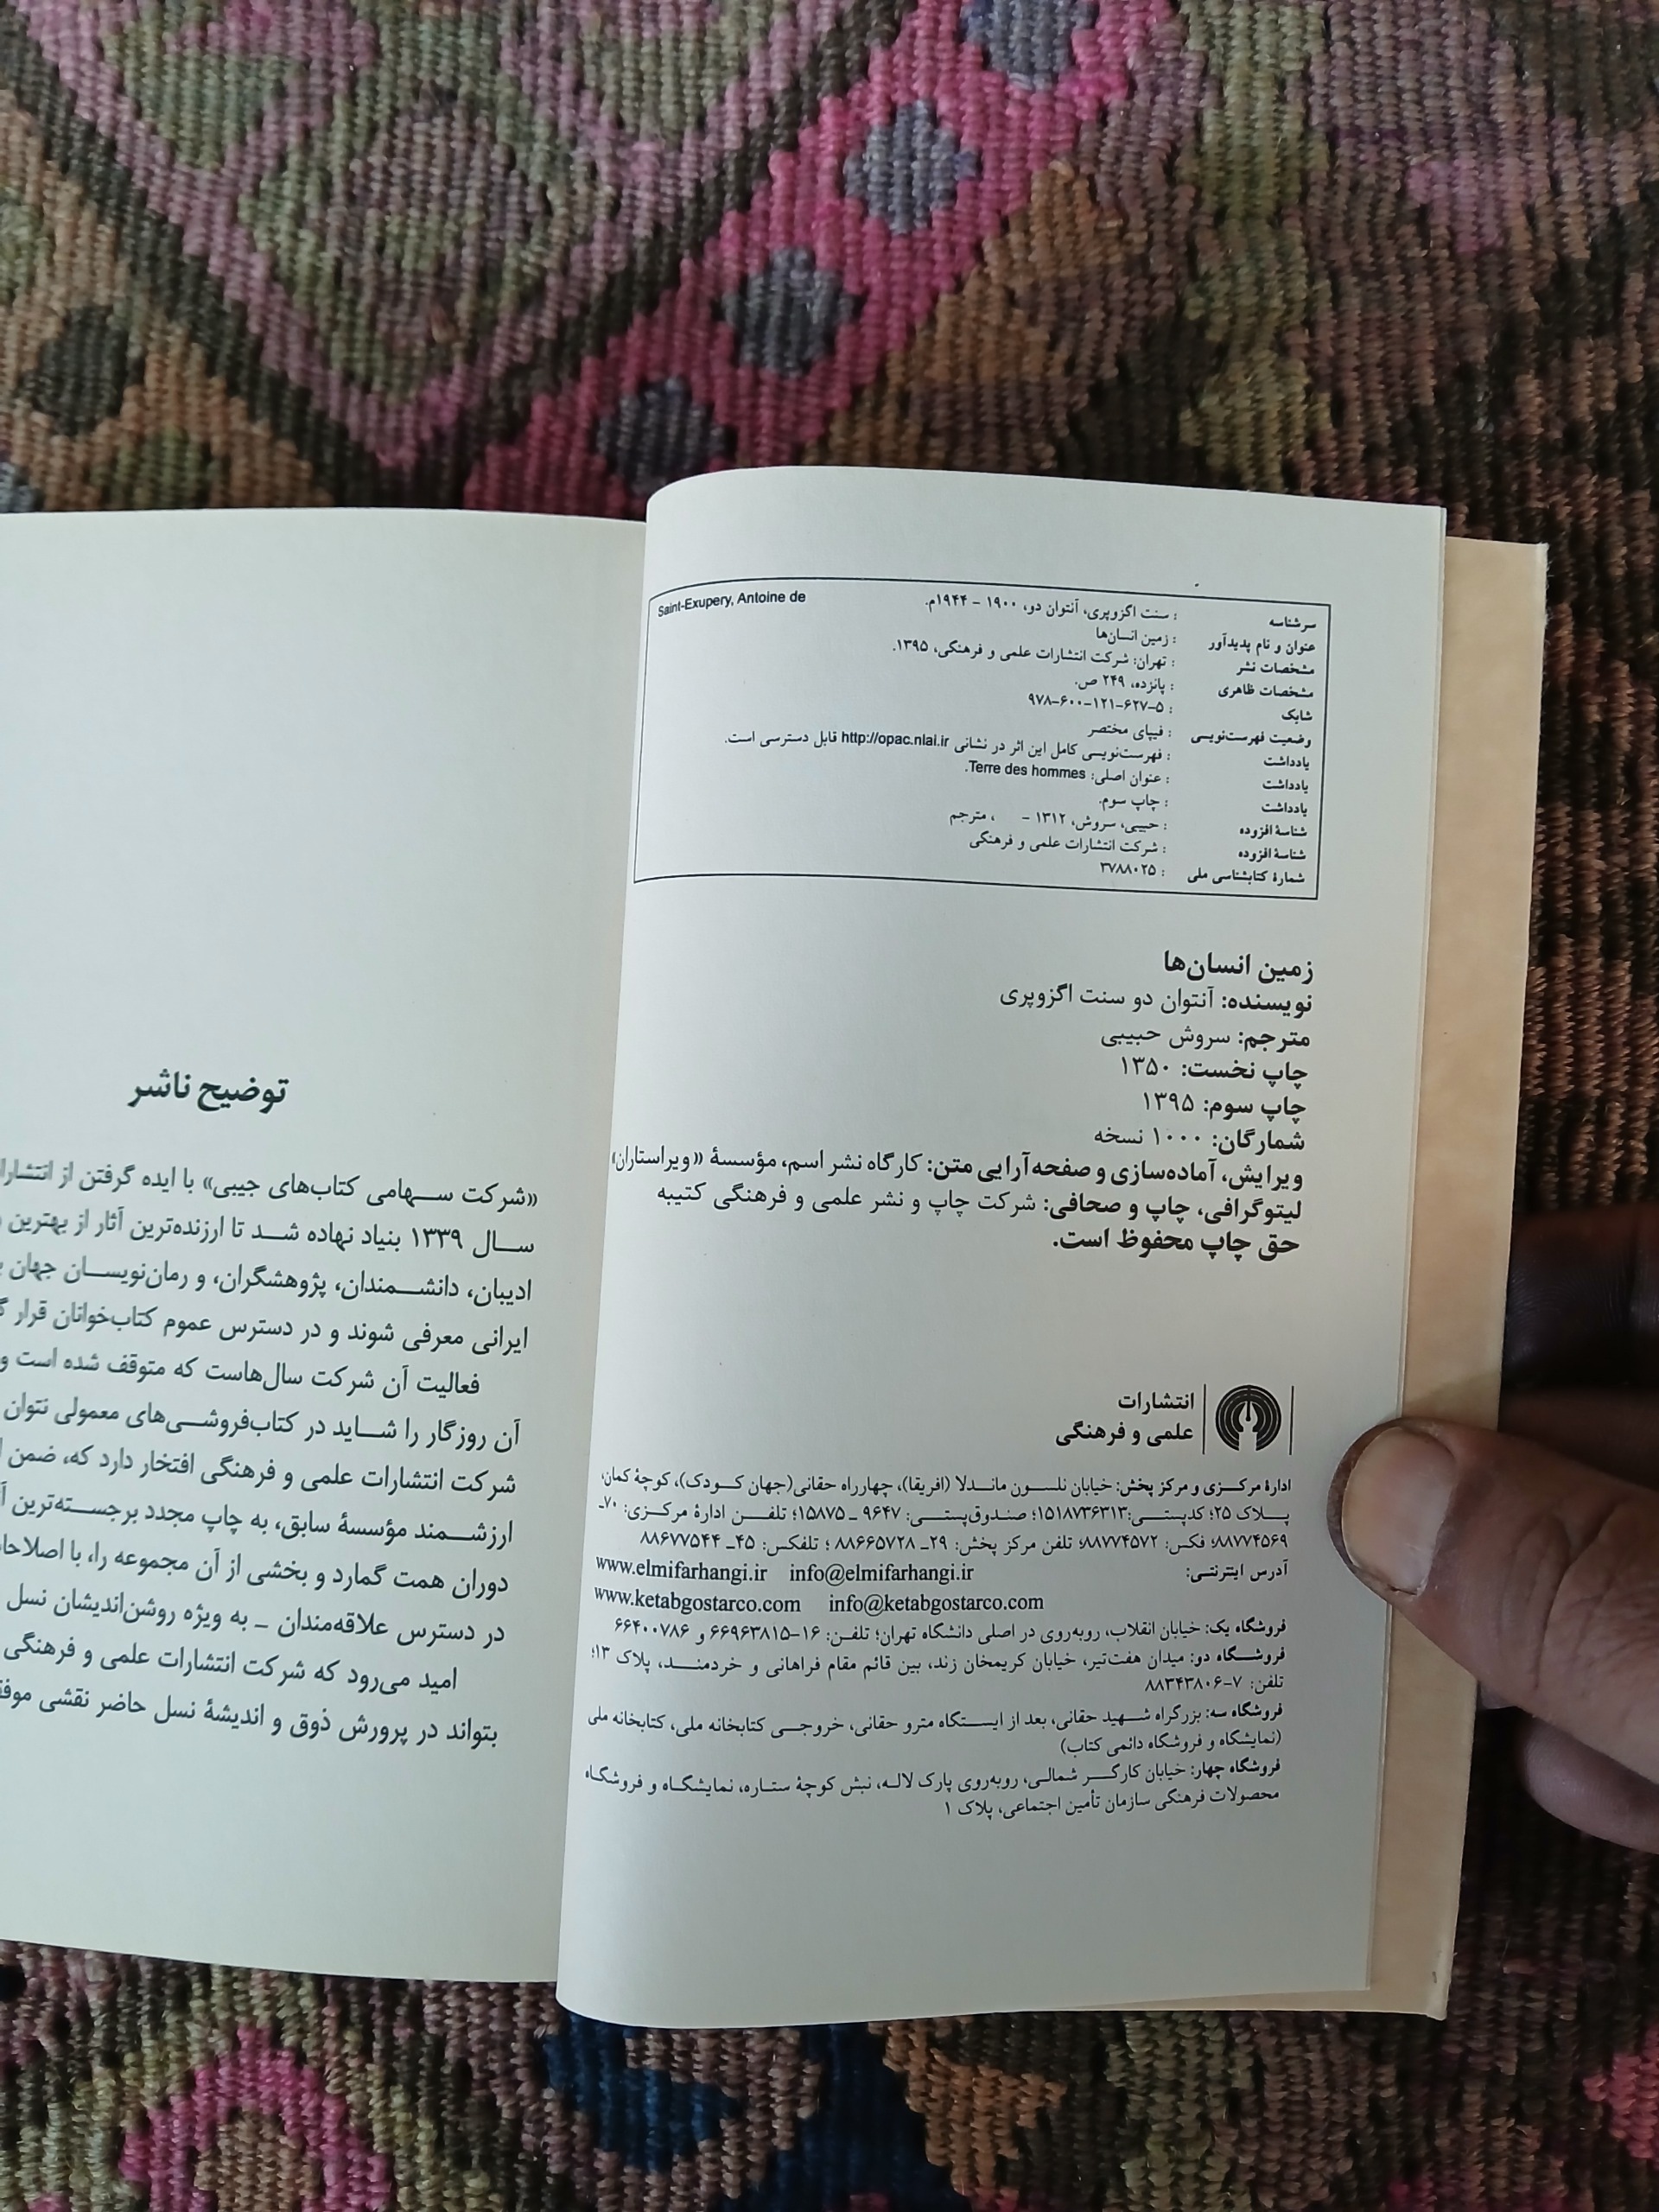 سرشناسه : سنت اگزوپری، آنتوان دو، ۱۹۰۰ - ۱۹۴۴م. Saint-Exupery, Antoine de
عنوان و نام پدیدآور : زمین انسان‌ها
مشخصات نشر : تهران: شرکت انتشارات علمی و فرهنگی، ۱۳۹۵.
مشخصات ظاهری : پانزده، ۲۴۹ ص.
شابک : ۹۷۸-۶۰۰-۱۲۱-۶۲۷-۵
وضعیت فهرست‌نویسی : فیپای مختصر
یادداشت : فهرست‌نویسی کامل این اثر در نشانی http://opac.nlai.ir قابل دسترسی است.
یادداشت : عنوان اصلی: Terre des hommes.
یادداشت : چاپ سوم.
شناسهٔ افزوده : حبیبی، سروش، ۱۳۱۲ - ، مترجم
شناسهٔ افزوده : شرکت انتشارات علمی و فرهنگی
شمارهٔ کتابشناسی ملی : ۳۷۸۸۰۲۵
زمین انسان‌ها
نویسنده: آنتوان دو سنت اگزوپری
مترجم: سروش حبیبی
چاپ نخست: ۱۳۵۰
چاپ سوم: ۱۳۹۵
شمارگان: ۱۰۰۰ نسخه
ویرایش، آماده‌سازی و صفحه‌آرایی متن: کارگاه نشر اسم، مؤسسهٔ «ویراستاران»
لیتوگرافی، چاپ و صحافی: شرکت چاپ و نشر علمی و فرهنگی کتیبه
حق چاپ محفوظ است.
انتشارات
علمی و فرهنگی
ادارهٔ مرکزی و مرکز پخش: خیابان نلسون ماندلا (افریقا)، چهارراه حقانی (جهان کودک)، کوچهٔ کمان،
پلاک ۲۵؛ کدپستی: ۱۵۱۸۷۳۶۳۱۳؛ صندوق‌پستی: ۹۶۴۷ ـ ۱۵۸۷۵؛ تلفن ادارهٔ مرکزی: ۷۰ـ
۸۸۷۷۴۵۶۹؛ فکس: ۸۸۷۷۴۵۷۲؛ تلفن مرکز پخش: ۲۹ـ ۸۸۶۶۵۷۲۸ ؛ تلفکس: ۴۵ـ ۸۸۶۷۷۵۴۴
آدرس اینترنتی: www.elmifarhangi.ir info@elmifarhangi.ir
www.ketabgostarco.com info@ketabgostarco.com
فروشگاه یک: خیابان انقلاب، روبه‌روی در اصلی دانشگاه تهران؛ تلفن: ۱۶-۶۶۹۶۳۸۱۵ و ۶۶۴۰۰۷۸۶
فروشگاه دو: میدان هفت‌تیر، خیابان کریمخان زند، بین قائم مقام فراهانی و خردمند، پلاک ۱۳؛
تلفن: ۷-۸۸۳۴۳۸۰۶
فروشگاه سه: بزرگراه شهید حقانی، بعد از ایستگاه مترو حقانی، خروجی کتابخانه ملی، کتابخانه ملی
(نمایشگاه و فروشگاه دائمی کتاب)
فروشگاه چهار: خیابان کارگر شمالی، روبه‌روی پارک لاله، نبش کوچهٔ ستاره، نمایشگاه و فروشگاه
محصولات فرهنگی سازمان تأمین اجتماعی، پلاک ۱
توضیح ناشر
«شرکت سهامی کتاب‌های جیبی» با ایده گرفتن از
سال ۱۳۳۹ بنیاد نهاده شد تا ارزنده‌ترین آثار از بهترین
ادیبان، دانشمندان، پژوهشگران، و رمان‌نویسان جهان
ایرانی معرفی شوند و در دسترس عموم کتاب‌خوانان قرار
فعالیت آن شرکت سال‌هاست که متوقف شده است و
آن روزگار را شاید در کتاب‌فروشی‌های معمولی نتوان
شرکت انتشارات علمی و فرهنگی افتخار دارد که، ضمن
ارزشمند مؤسسهٔ سابق، به چاپ مجدد برجسته‌ترین
دوران همت گمارد و بخشی از آن مجموعه را، با
در دسترس علاقه‌مندان ـ به ویژه روشن‌اندیشان نسل
امید می‌رود که شرکت انتشارات علمی و فرهنگی
بتواند در پرورش ذوق و اندیشهٔ نسل حاضر نقشی